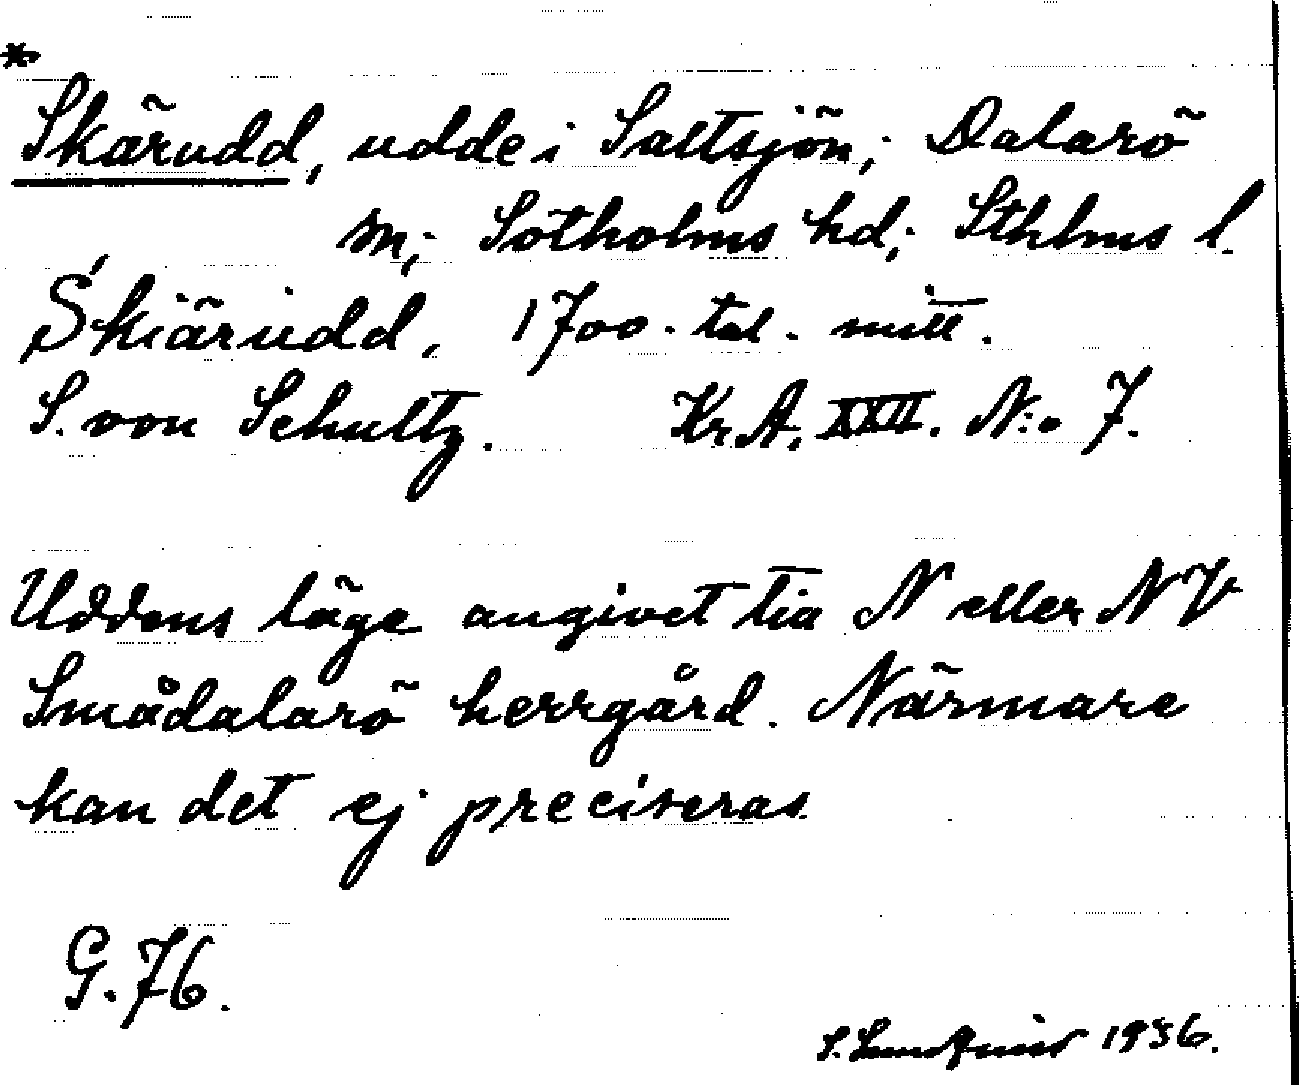 *
Skärudd, udde i Saltsjön; Dalarö
sn; Sotholms hd; Sthlms l.
Skiärudd. 1700-tal. mitt.
S. von Schultz. Kr.A. XXII. N:o 7.
Uddens läge angivet N eller NV
Smådalarö herrgård. Närmare
kan det ej preciseras.
G.76.
S. 1936.